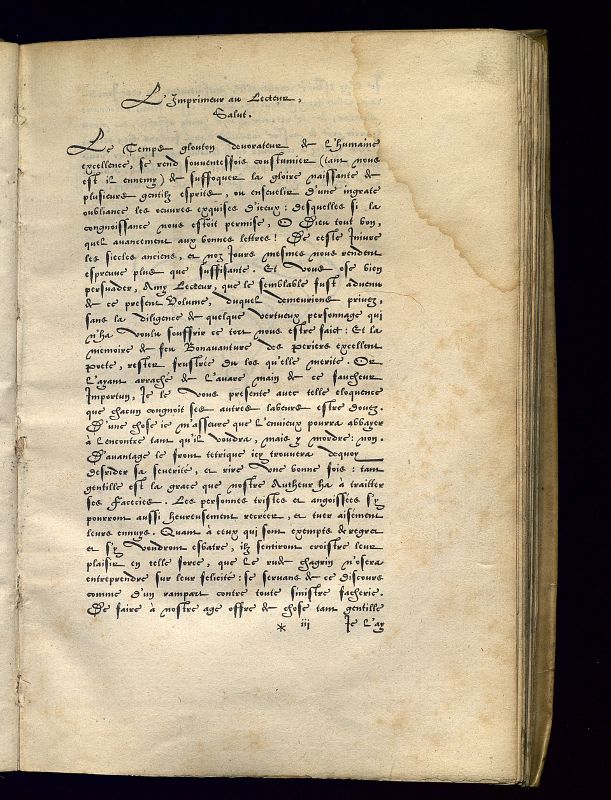 L'Imprimeur au Lecteur,
Salut.
Le Temps glouton devorateur de l'humaine
excellence, se rend souventesfois coustumier (tant nous
est il ennemy) de suffoquer la gloire naissante de
plusieurs gentilz esprits, ou ensevelir d'une ingrate
oubliance les oeuvres exquises d'iceux: desquelles si la
congnoissance nous estoit permise, O Dieu tout bon,
quel avancement aux bonnes lettres! De ceste Iniure
les siecles anciens, et noz Iours mesmes nous rendent
espreuve plus que suffisante. Et vous ose bien
persuader, Amy Lecteur, que le semblable fust advenu
de ce present Volume, duquel demeurions privez,
sans la diligence de quelque vertueux personnage qui
n'ha voulu souffrir ce tort nous estre faict: Et la
memoire de feu Bonaventure des periers excellent
poete, rester frustrée du los qu'elle merite. Or
l'ayant arraché de l'avare main de ce faucheur
Importun, Ie le vous presente avec telle eloquence
que chacun congnoit ses autres labeurs estre douez.
D'une chose ie m'asseure que l'envieux pourra abbayer
à l'encontre tant qu'il voudra, mais y mordre: non.
D'avantage le front tetrique icy trouvera dequoy
desrider sa severité, et rire une bonne fois: tant
gentille est la grace que nostre Autheur ha à traitter
ses Faceties. Les personnes tristes et angoissées s'y
pourront aussi heureusement recreer, et tuer aisement
leurs ennuys. Quant à ceux qui sont exempts de regret
et s'y voudront esbatre, ilz sentiront croistre leur
plaisir en telle force, que le rude chagrin n'osera
entreprendre sur leur felicité: se servans de ce discours
comme d'un rampart contre toute sinistre facherie.
De faire à nostre age offre de chose tant gentille
* iij Ie l'ay